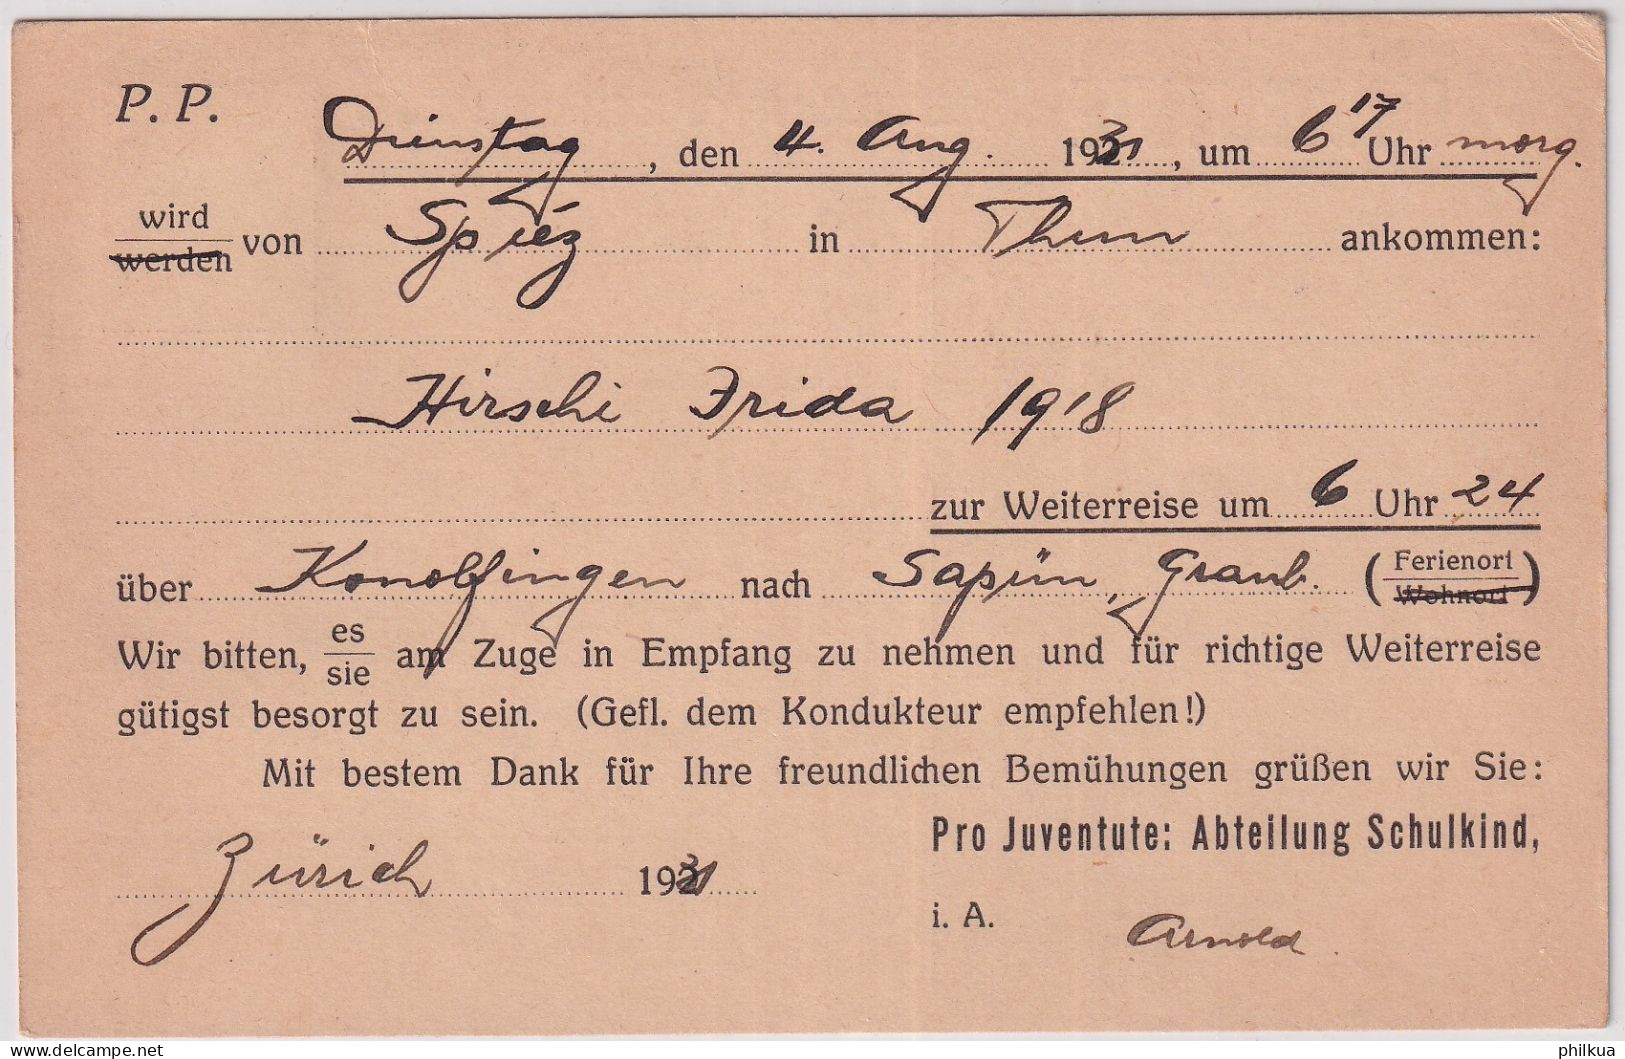 P. P.
Dienstag, den 4. Aug. 1931, um 6 17 Uhr morg.
wird
werden von Spiez in Thun ankommen:
Hirschi Frida 1918
zur Weiterreise um 6 Uhr 24
über Konolfingen nach Sapün, Graub. (Ferienort
Wohnort)
Wir bitten, es
sie am Zuge in Empfang zu nehmen und für richtige Weiterreise
gütigst besorgt zu sein. (Gefl. dem Kondukteur empfehlen!)
Mit bestem Dank für Ihre freundlichen Bemühungen grüßen wir Sie:
Pro Juventute: Abteilung Schulkind,
Zürich 1931
i. A. Arnold
delcampe.net
philkua